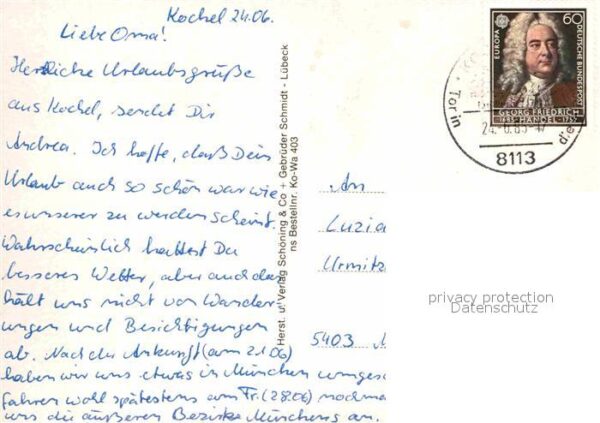 Kochel 24.06.
Liebe Oma!
Herzliche Urlaubsgrüße
aus Kochel, sendet Dir
Andrea. Ich hoffe, daß Dein
Urlaub auch so schön war wie
es unserer zu werden scheint.
Wahrscheinlich hattest Du
besseres Wetter, aber auch das
hält uns nicht von Wander-
ungen und Besichtigungen
ab. Nach der Ankunft (am 21.06)
haben wir uns etwas in München umgesc
fahren wohl spätestens am Fr. (28.06) nochma
uns die äußeren Bezirke Münchens an.
Herst. u. Verlag Schöning & Co + Gebrüder Schmidt - Lübeck
ns Bestellnr. Ko-Wa 403
EUROPA
60
DEUTSCHE BUNDESPOST
GEORG FRIEDRICH
1685 HÄNDEL 1759
Tor in
24.6.85
8113
An
Luzia
Urmitz
5403
privacy protection
Datenschutz